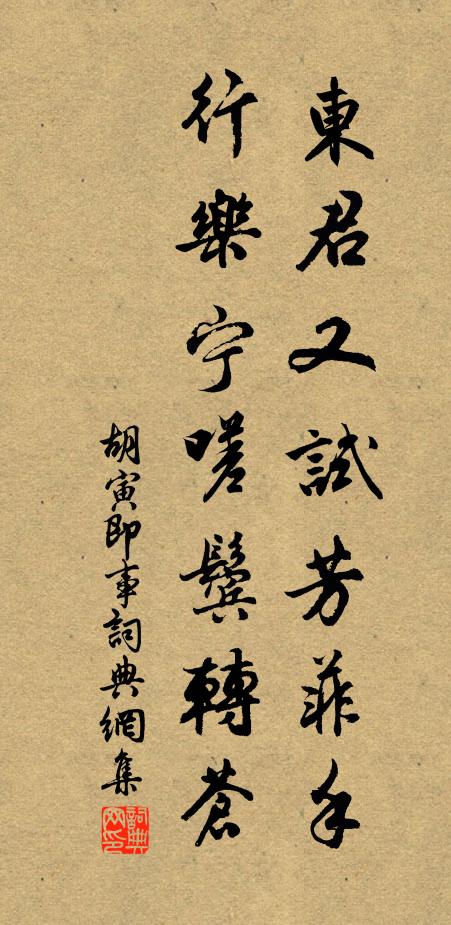 東君又試芳菲手
行樂宁嗟鬢轉蒼
胡寅即事詞典網集
詞典网印